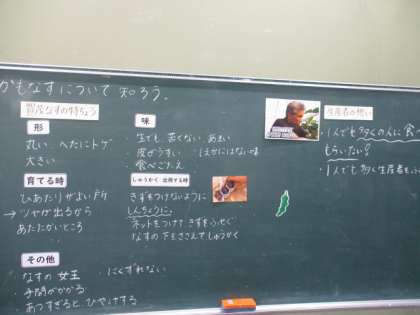 かもなすについて知ろう。
賀茂なすの特ちょう
形
丸い ヘたにトゲ
大きい
育てる時
ひあたりがよい所
→ツヤが出るから
あたたかいところ
その他
なすの女王 にくずれない
手間がかかる
あつすぎるとひやけする
味
・生でも、苦くない、あまい
・皮がうすい
・食べごたえ
しゅうかく 出荷する時
きずをつけないように
しんちょうに。
ネットをつけてきずをふせぐ
なすの下をささえてしゅうかく
生産者の想い
・1人でも多くの人に食
もらいたい!
・1人でも多く生産者をふ